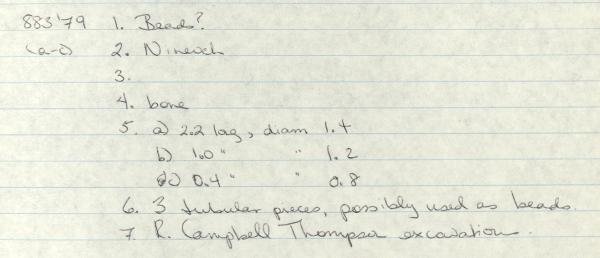 883'79 1. Beads?
(a-c) 2. Nineveh
3.
4. bone
5. a) 2.2 log, diam 1.4
b) 1.0 " " 1.2
c) 0.4 " " 0.8
6. 3 tubular pieces, possibly used as beads.
7. R. Campbell Thompson excavation.